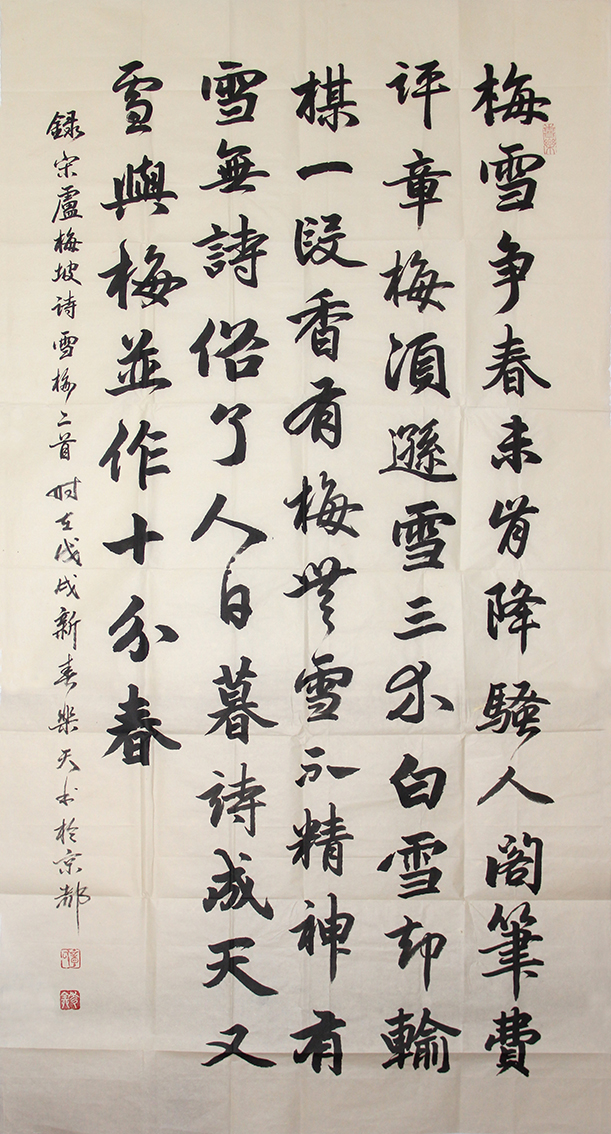 梅雪争春未肯降騷人閣筆費
评章梅湏遜雪三分白雪却輸
楳一段香有梅無雪不精神有
雪無詩俗了人日暮詩成天又
雪與梅並作十分春
録宋盧梅坡诗雪梅二首时在戊戌新春樂天书於京都